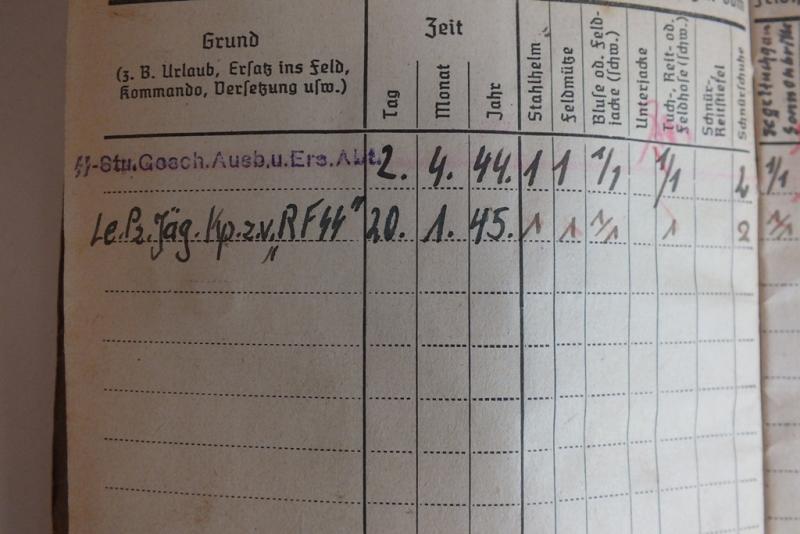 Grund
(z. B. Urlaub, Ersatz ins Feld,
Kommando, Versetzung usw.)
Zeit
Tag
Monat
Jahr
Stahlhelm
Feldmütze
Bluse od. Feld-
jacke (schw.)
Unterjacke
Tuch-, Reit- od.
Feldhose (schw.)
Schnür-,
Reitstiefel
Schnürschuhe
SS-Stu.Gesch.Ausb.u.Ers.Abt. 2. 4. 44. 1 1 1/1 1/1 2 1/1
Le.Pz.Jäg.Kp.z.v. "RFSS" 20. 1. 45. 1 1 1/1 1 2 1/1